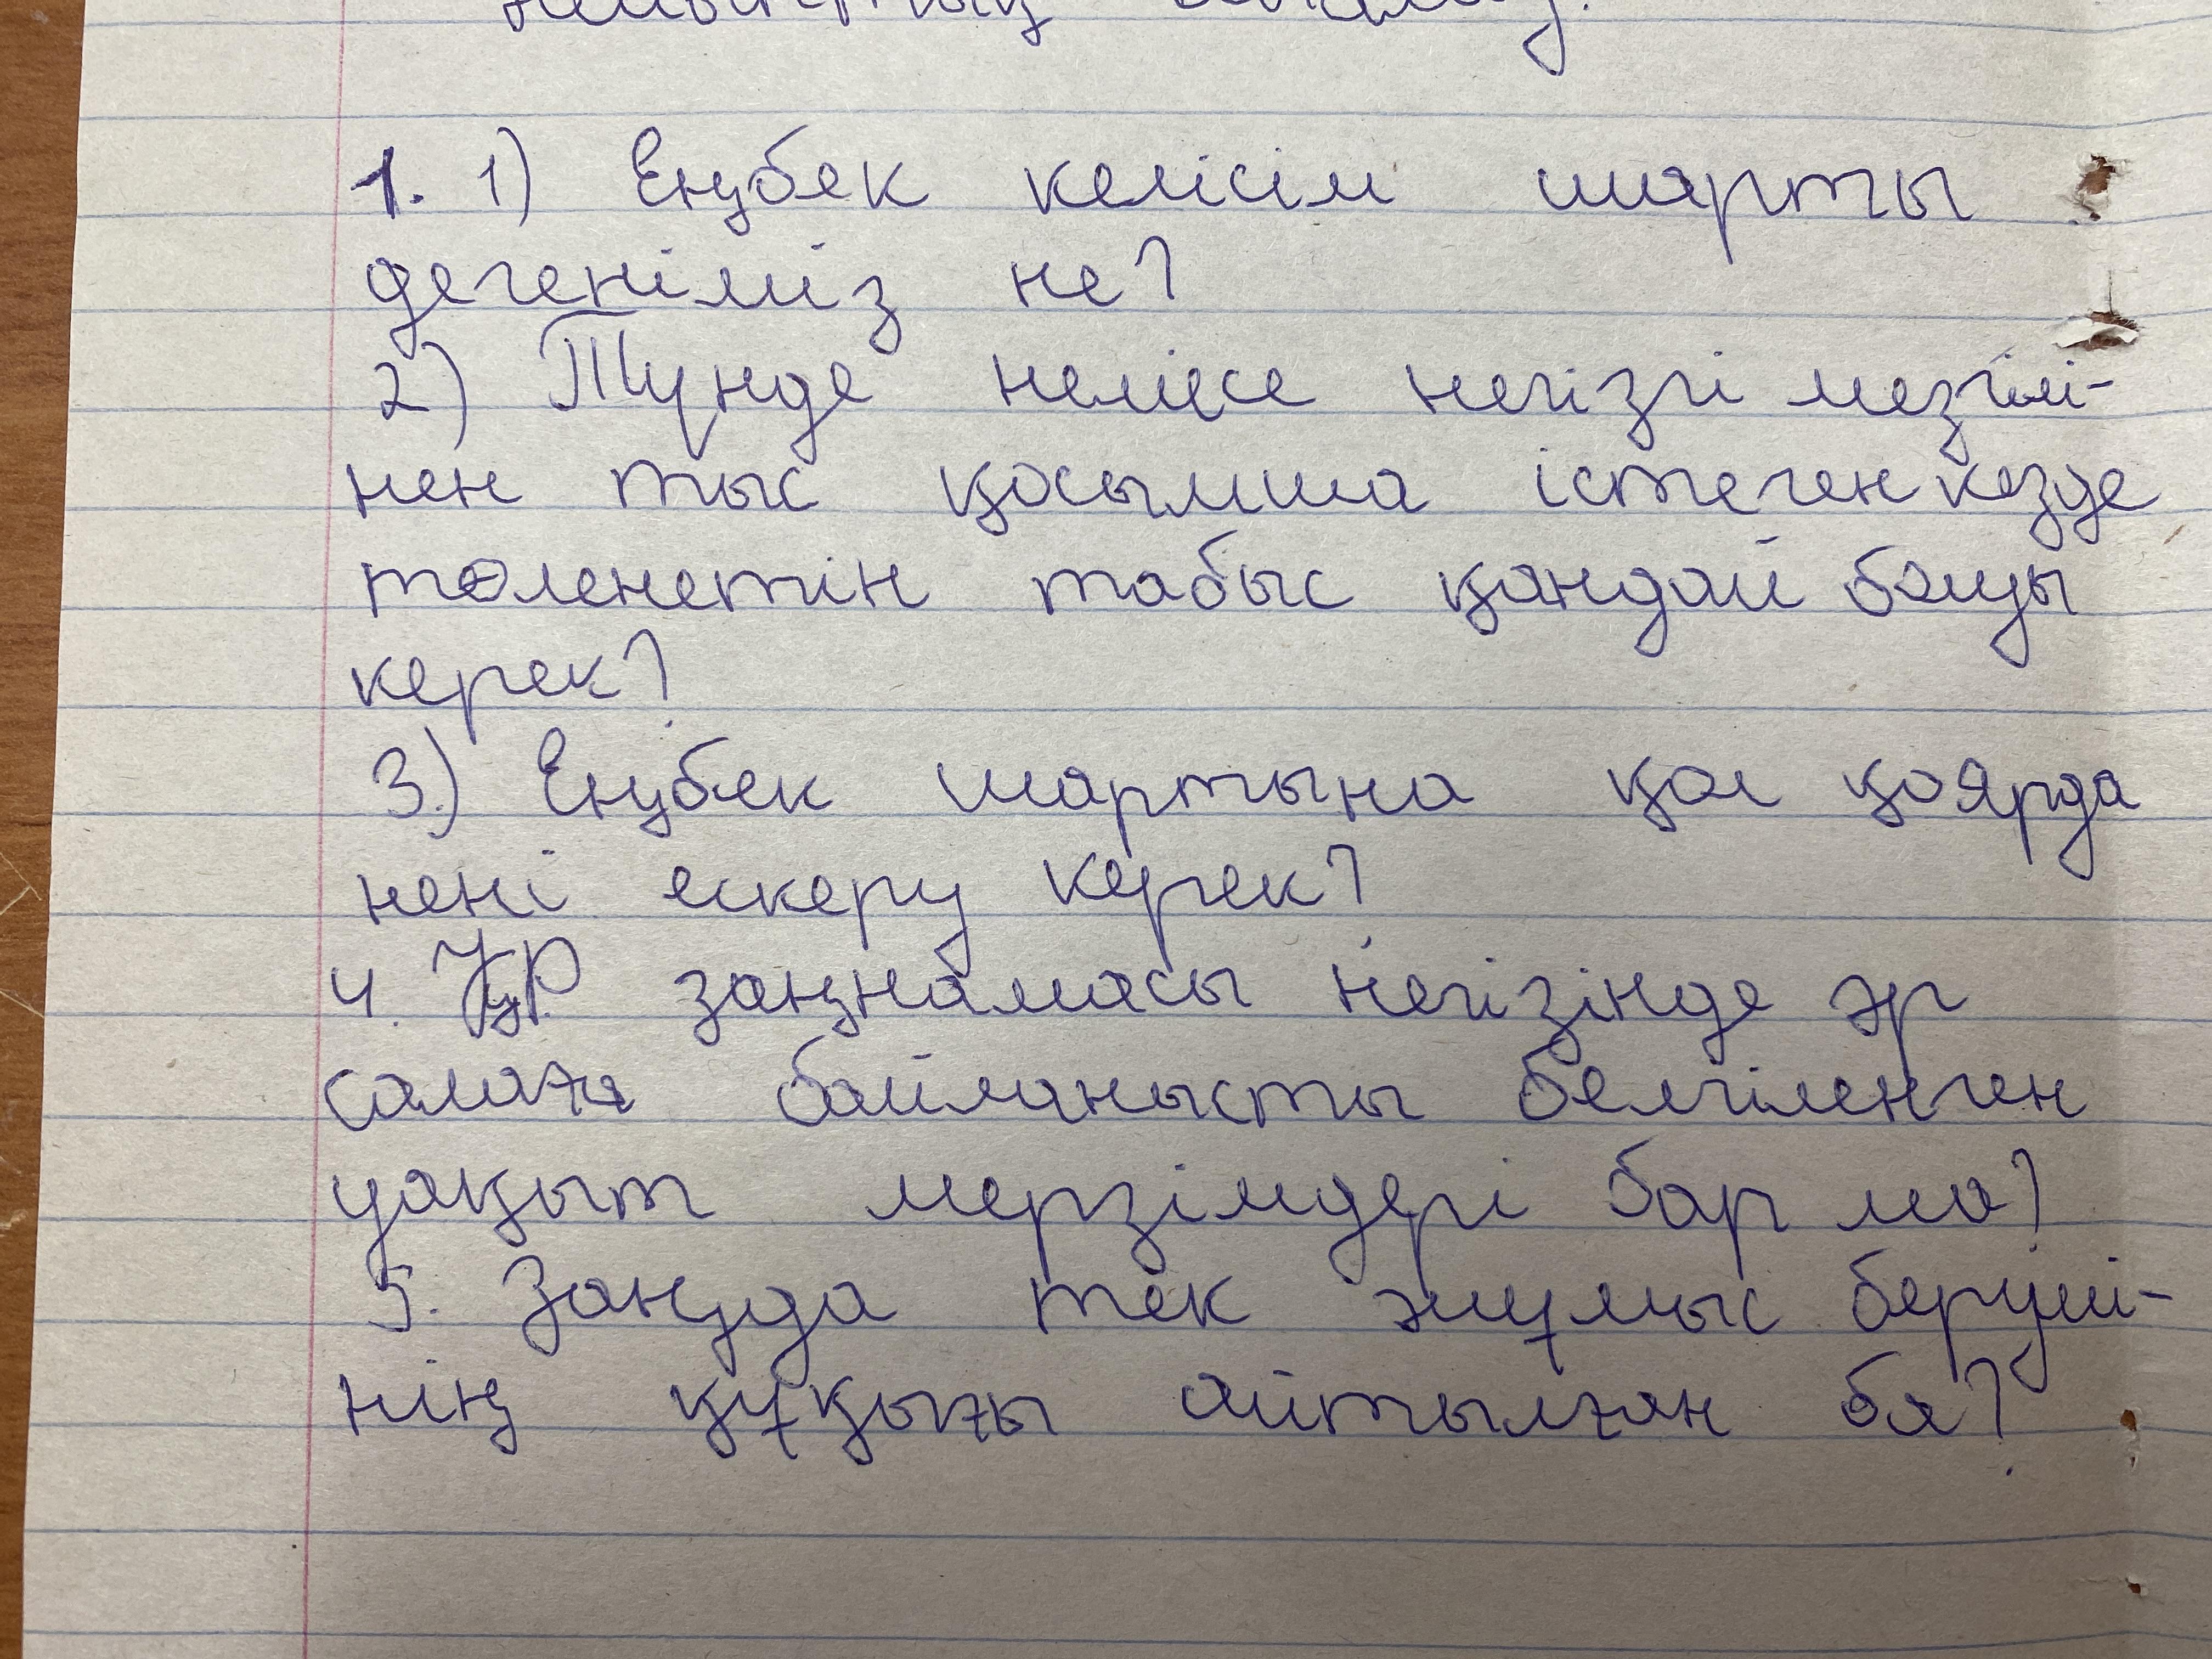 1. 1) Еңбек келісім шарты
дегеніміз не?
2) Түнде немесе негізгі мезгілі-
нен тыс қосымша істеген кезде
төленетін табыс қандай болуы
керек?
3.) Еңбек шартына қол қоярда
нені ескеру керек?
4. ҚР заңнамасы негізінде әр
салаға байланысты белгіленген
уақыт мерзімдері бар ма?
5. Заңда тек жұмыс беруші-
нің құқығы айтылған ба?